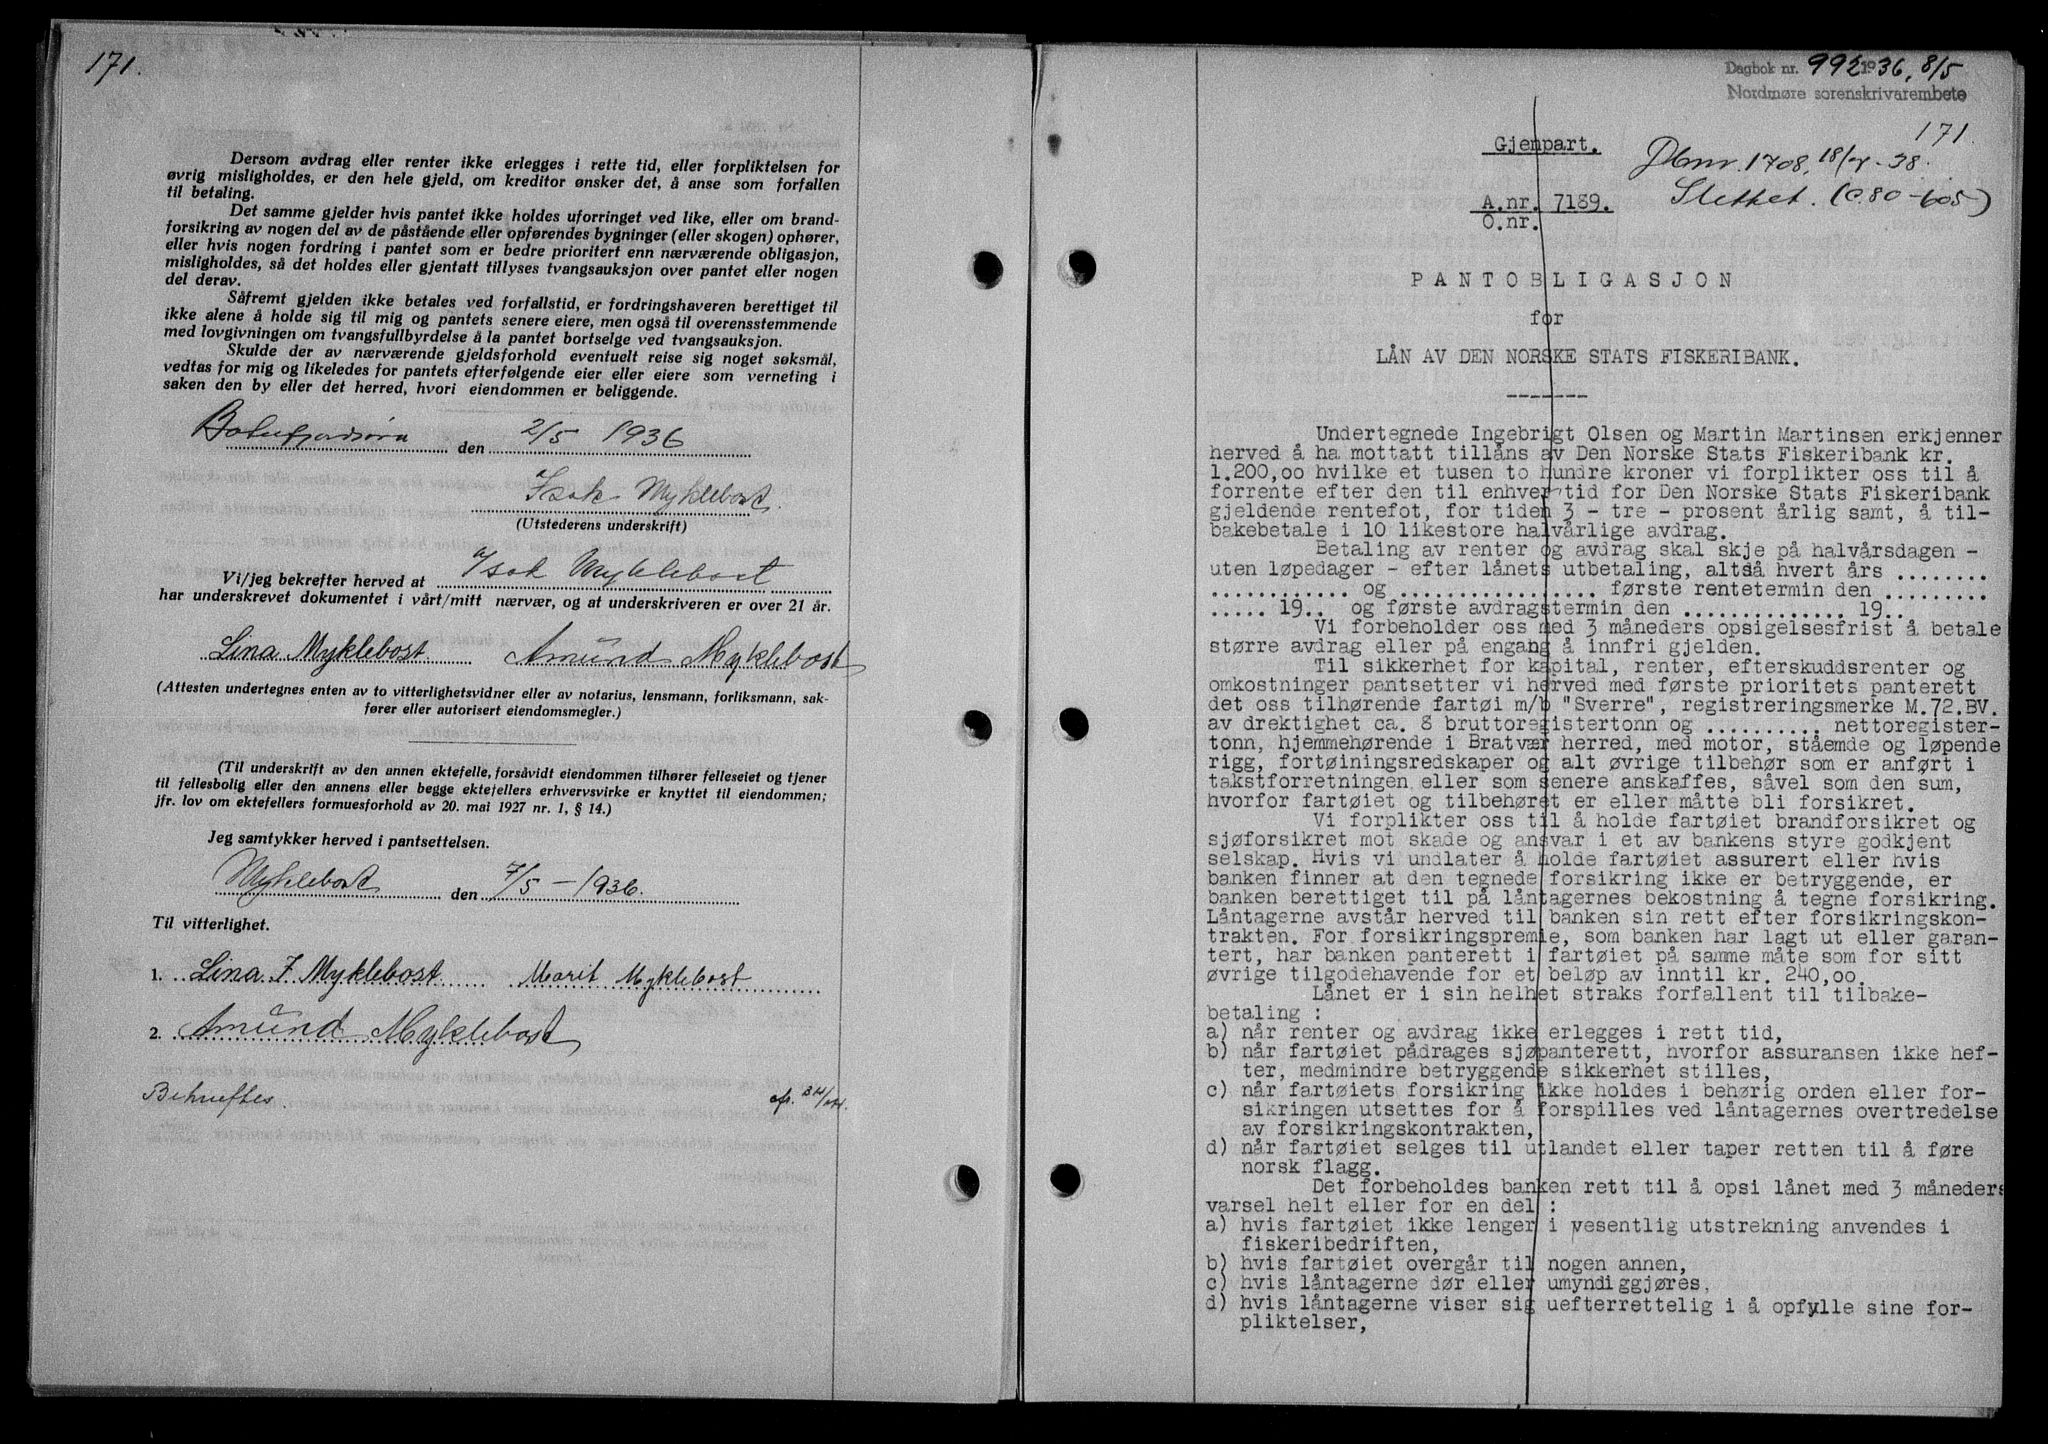 171.
Dersom avdrag eller renter ikke erlegges i rette tid, eller forpliktelsen for
øvrig misligholdes, er den hele gjeld, om kreditor ønsker det, å anse som forfallen
til betaling.
Det samme gjelder hvis pantet ikke holdes uforringet ved like, eller om brand-
forsikring av nogen del av de påstående eller opførendes bygninger (eller skogen) ophører,
eller hvis nogen fordring i pantet som er bedre prioritert enn nærværende obligasjon,
misligholdes, så det holdes eller gjentatt tillyses tvangsauksjon over pantet eller nogen
del derav.
Såfremt gjelden ikke betales ved forfallstid, er fordringshaveren berettiget til
ikke alene å holde sig til mig og pantets senere eiere, men også til overensstemmende
med lovgivningen om tvangsfullbyrdelse å la pantet bortselge ved tvangsauksjon.
Skulde der av nærværende gjeldsforhold eventuelt reise sig noget søksmål,
vedtas for mig og likeledes for pantets efterfølgende eier eller eiere som verneting i
saken den by eller det herred, hvori eiendommen er beliggende.
den 2/5 1936
Isak Myklebost.
(Utstederens underskrift)
Vi/jeg bekrefter herved at Isak Myklebost
har underskrevet dokumentet i vårt/mitt nærvær, og at underskriveren er over 21 år.
Lina Myklebost. Amund Myklebost
(Attesten undertegnes enten av to vitterlighetsvidner eller av notarius, lensmann, forliksmann, sak-
fører eller autorisert eiendomsmegler.)
(Til underskrift av den annen ektefelle, forsåvidt eiendommen tilhører felleseiet og tjener
til fellesbolig eller den annens eller begge ektefellers erhvervsvirke er knyttet til eiendommen;
jfr. lov om ektefellers formuesforhold av 20. mai 1927 nr. 1, § 14.)
Jeg samtykker herved i pantsettelsen.
Myklebost den 7/5 - 1936.
Til vitterlighet.
1. Lina I. Myklebost Marit Myklebost
2. Amund Myklebost
Bekreftes
Dagbok nr. 992 1936, 8/5
Nordmøre sorenskrivarembete
171
Gjenpart.
Dbnr. 1708, 18/7-38.
Slettet. (C.80-605)
A.nr. 7189.
O.nr.
PANTOBLIGASJON
for
LÅN AV DEN NORSKE STATS FISKERIBANK.
Undertegnede Ingebrigt Olsen og Martin Martinsen erkjenner
herved å ha mottatt tillåns av Den Norske Stats Fiskeribank kr.
1.200,00 hvilke et tusen to hundre kroner vi forplikter oss til å
forrente efter den til enhver tid for Den Norske Stats Fiskeribank
gjeldende rentefot, for tiden 3 - tre - prosent årlig samt, å til-
bakebetale i 10 likestore halvårlige avdrag.
Betaling av renter og avdrag skal skje på halvårsdagen -
uten løpedager - efter lånets utbetaling, altså hvert års ........
............ og .................. første rentetermin den .........
..... 19.. og første avdragstermin den .............. 19..
Vi forbeholder oss med 3 måneders opsigelsesfrist å betale
større avdrag eller på engang å innfri gjelden.
Til sikkerhet for kapital, renter, efterskuddsrenter og
omkostninger pantsetter vi herved med første prioritets panterett
det oss tilhørende fartøi m/b "Sverre", registreringsmerke M.72.BV.
av drektighet ca. 8 bruttoregistertonn og .......... nettoregister-
tonn, hjemmehørende i Bratvær herred, med motor, ståemde og løpende
rigg, fortøiningsredskaper og alt øvrige tilbehør som er anført i
takstforretningen eller som senere anskaffes, såvel som den sum,
hvorfor fartøiet og tilbehøret er eller måtte bli forsikret.
Vi forplikter oss til å holde fartøiet brandforsikret og
sjøforsikret mot skade og ansvar i et av bankens styre godkjent
selskap. Hvis vi undlater å holde fartøiet assurert eller hvis
banken finner at den tegnede forsikring ikke er betryggende, er
banken berettiget til på låntagernes bekostning å tegne forsikring.
Låntagerne avstår herved til banken sin rett efter forsikringskon-
trakten. For forsikringspremie, som banken har lagt ut eller garan-
tert, har banken panterett i fartøiet på samme måte som for sitt
øvrige tilgodehavende for et beløp av inntil kr. 240,00.
Lånet er i sin helhet straks forfallent til tilbake-
betaling :
a) når renter og avdrag ikke erlegges i rett tid,
b) når fartøiet pådrages sjøpanterett, hvorfor assuransen ikke hef-
ter, medmindre betryggende sikkerhet stilles,
c) når fartøiets forsikring ikke holdes i behørig orden eller for-
sikringen utsettes for å forspilles ved låntagernes overtredelse
av forsikringskontrakten,
d) når fartøiet selges til utlandet eller taper retten til å føre
norsk flagg.
Det forbeholdes banken rett til å opsi lånet med 3 måneders
varsel helt eller for en del :
a) hvis fartøiet ikke lenger i vesentlig utstrekning anvendes i
fiskeribedriften,
b) hvis fartøiet overgår til nogen annen,
c) hvis låntagerne dør eller umyndiggjøres,
d) hvis låntagerne viser sig uefterrettelig i å opfylle sine for-
pliktelser,